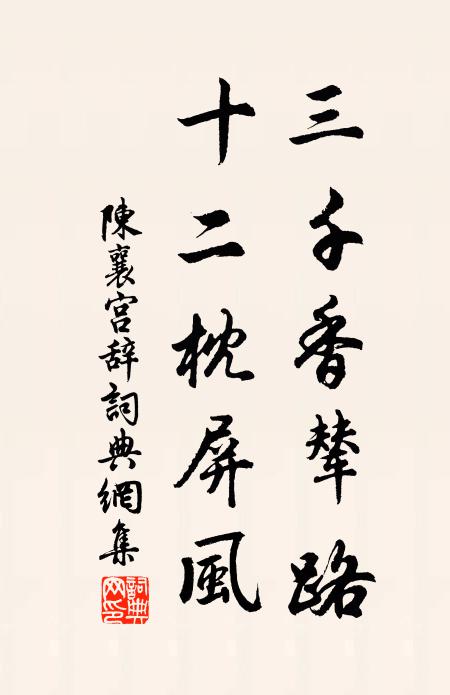 三千香輦路
十二枕屏風
陳襄宮辞詞典網集
詞典網印